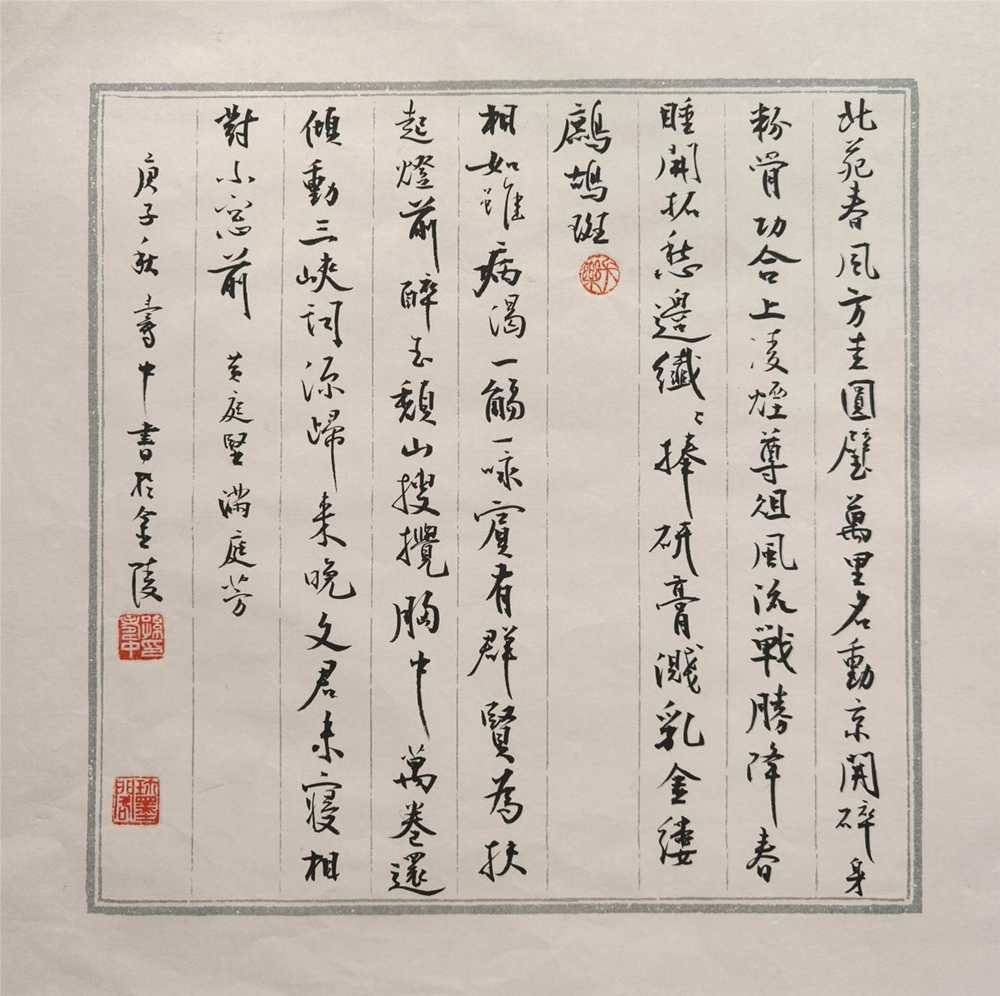 北苑春風方圭圓璧萬里名動京關碎身
粉骨功合上凌煙尊俎風流戰勝降春
睡開拓愁邊纖〻捧研膏濺乳金縷
鷓鴣斑
相如雖病渴一觴一詠賓有群賢為扶
起燈前醉玉頹山搜攪胸中萬卷還
傾動三峽詞源歸来晚文君未寢相
對小窗前 黃庭堅滿庭芳
庚子秋壽中書於金陵